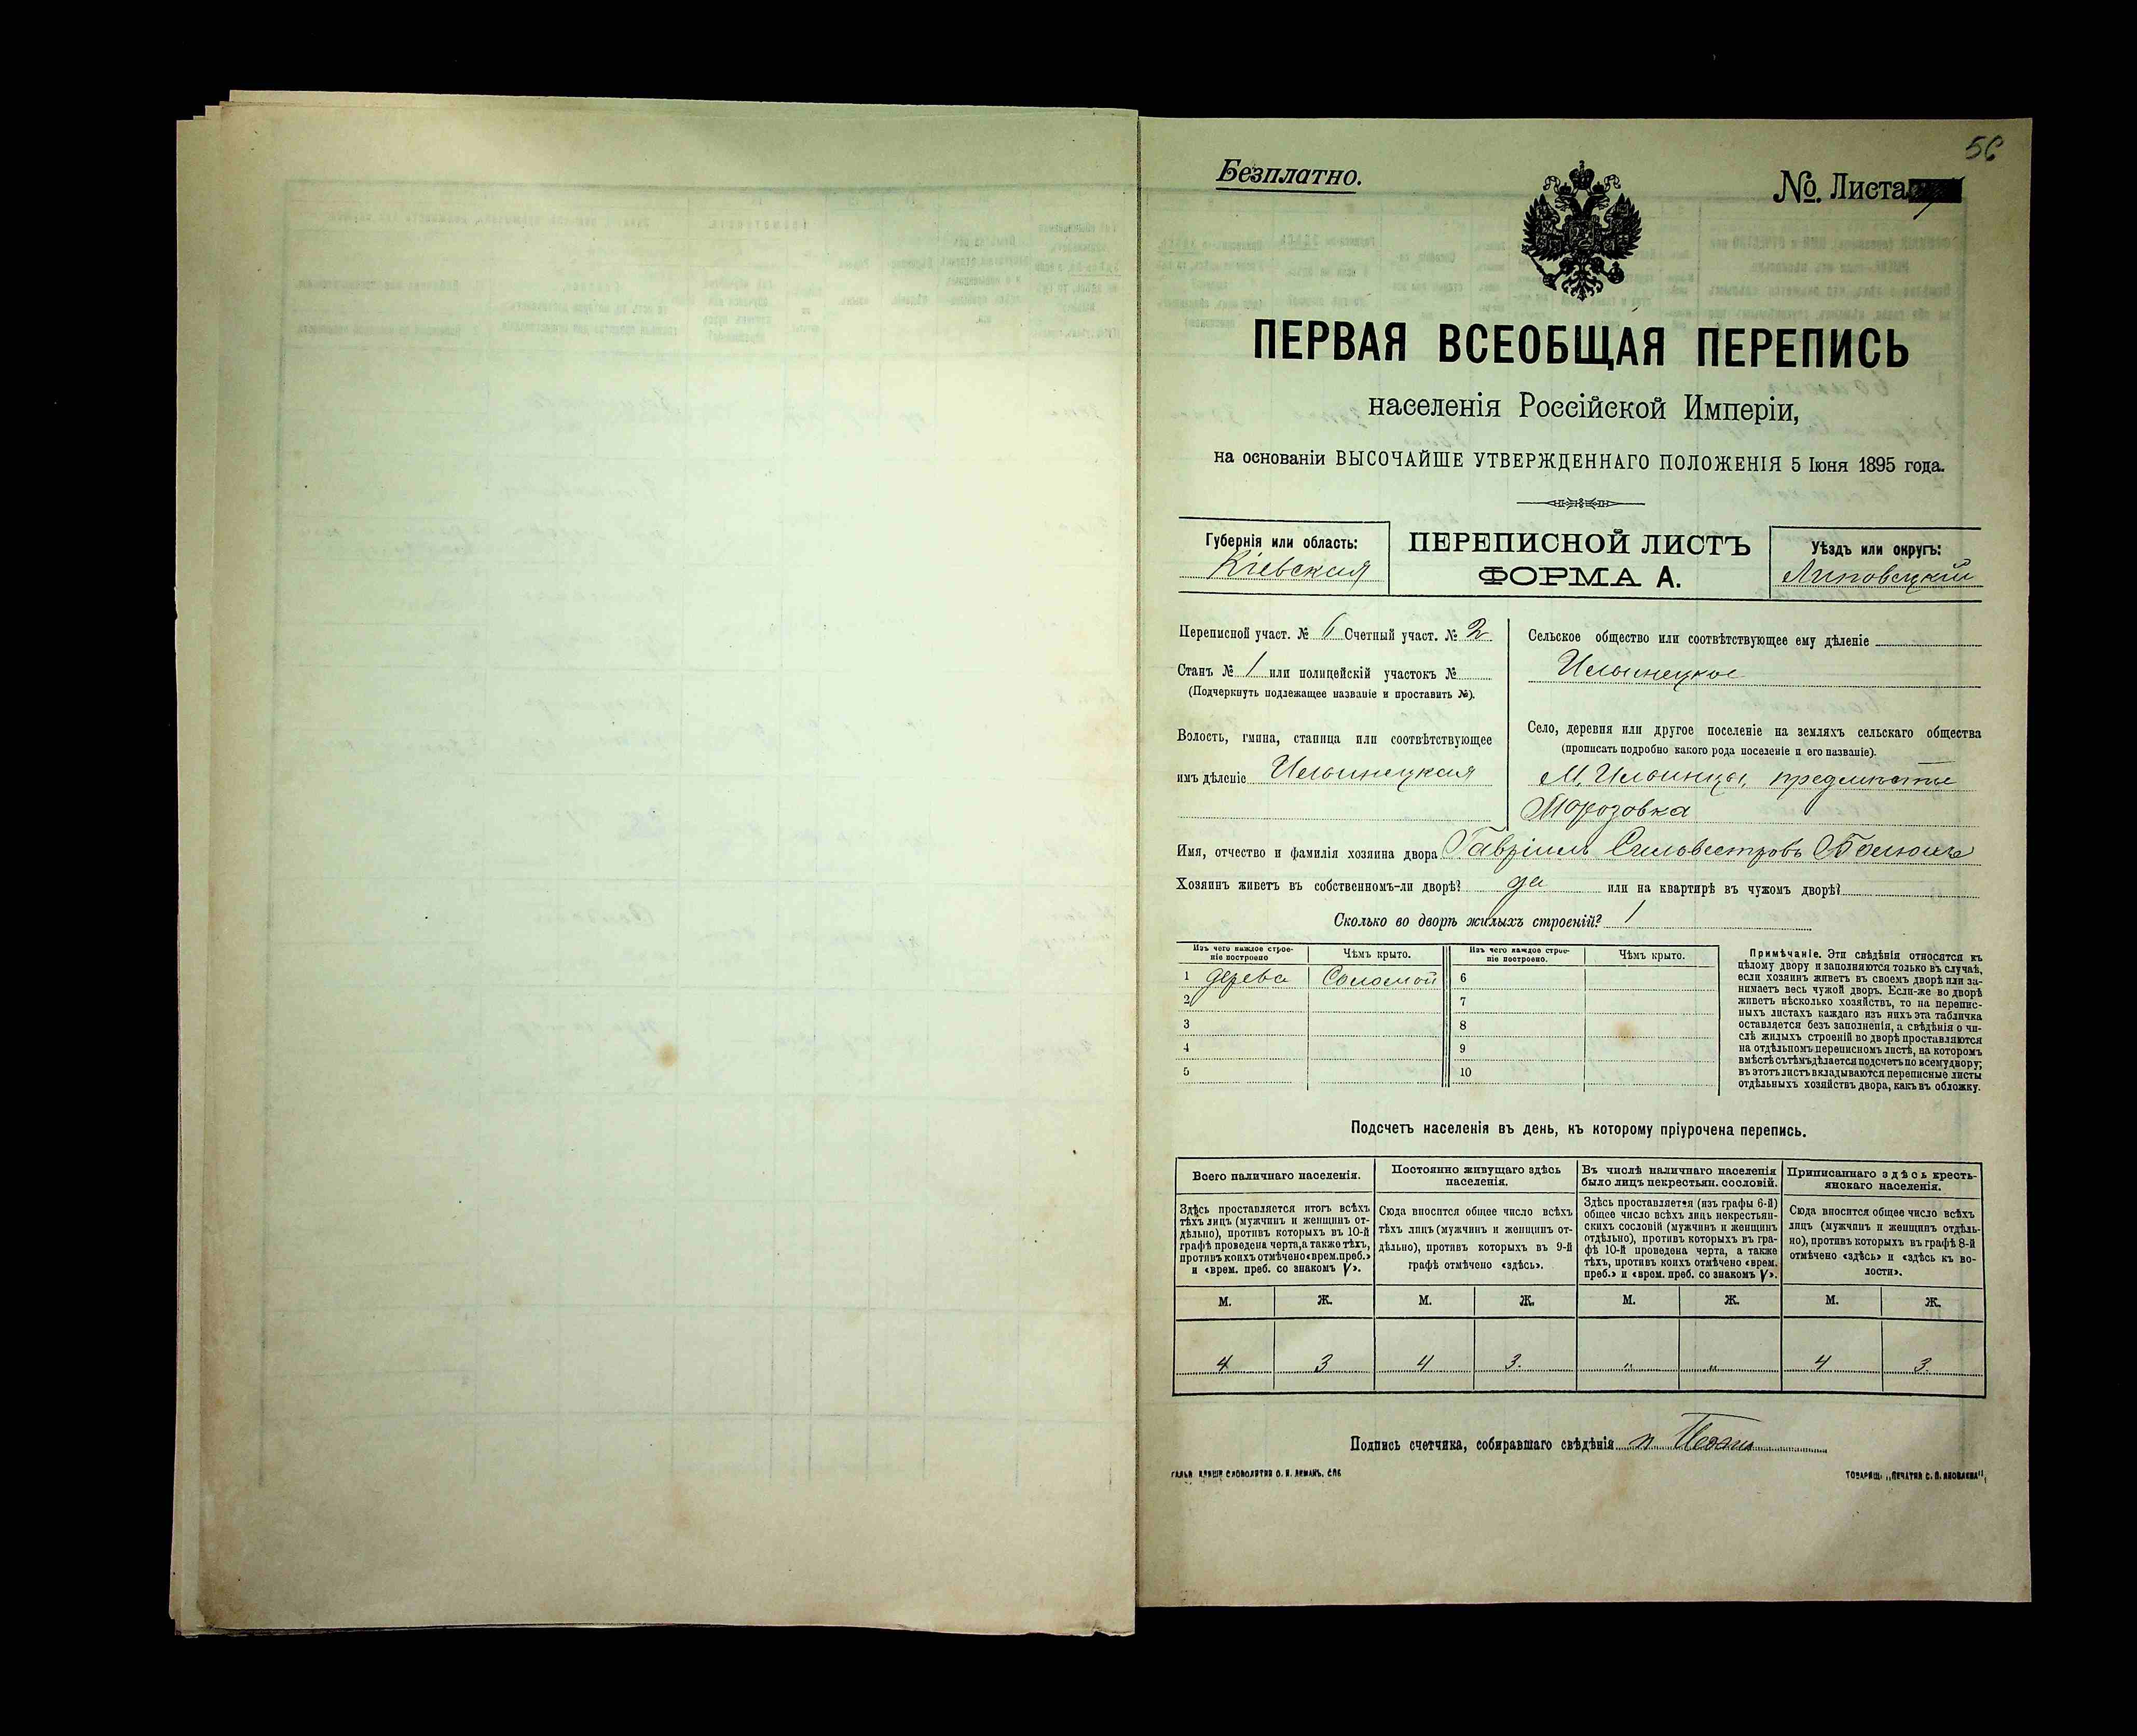 56
Безплатно.
№. Листа
ПЕРВАЯ ВСЕОБЩАЯ ПЕРЕПИСЬ
населенія Россійской Имперіи,
на основаніи ВЫСОЧАЙШЕ УТВЕРЖДЕННАГО ПОЛОЖЕНІЯ 5 Іюня 1895 года.
Губернія или область:
Кіевская
ПЕРЕПИСНОЙ ЛИСТЪ
ФОРМА А.
Уѣздъ или округъ:
Липовецкій
Переписной участ. № 6 Счетный участ. № 2
Станъ № 1 или полицейскій участокъ №
(Подчеркнуть подлежащее названіе и проставить №).
Волость, гмина, станица или соотвѣтствующее
имъ дѣленіе Ильинецкая
Сельское общество или соотвѣтствующее ему дѣленіе
Ильинецкое
Село, деревня или другое поселеніе на земляхъ сельскаго общества
(прописать подробно какого рода поселеніе и его названіе).
М. Ильинцы, предмѣстье
Морозовка
Имя, отчество и фамилія хозяина двора Гавріилъ Сильвестровъ
Хозяинъ живетъ въ собственномъ-ли дворѣ? да или на квартирѣ въ чужомъ дворѣ?
Сколько во дворѣ жилыхъ строеній? 1
Изъ чего каждое строе-
ніе построено
Чѣмъ крыто.
Изъ чего каждое строе-
ніе построено.
Чѣмъ крыто.
1 дерева Соломой 6
2 7
3 8
4 9
5 10
Примѣчаніе. Эти свѣдѣнія относятся къ
цѣлому двору и заполняются только въ случаѣ,
если хозяинъ живетъ въ своемъ дворѣ или за-
нимаетъ весь чужой дворъ. Если-же во дворѣ
живетъ нѣсколько хозяйствъ, то на перепис-
ныхъ листахъ каждаго изъ нихъ эта табличка
оставляется безъ заполненія, а свѣдѣнія о чи-
слѣ жилыхъ строеній во дворѣ проставляются
на отдѣльномъ переписномъ листѣ, на которомъ
вмѣстѣ съ тѣмъ дѣлается подсчетъ по всему двору;
въ этотъ листъ вкладываются переписные листы
отдѣльныхъ хозяйствъ двора, какъ въ обложку.
Подсчетъ населенія въ день, къ которому пріурочена перепись.
Всего наличнаго населенія.
Здѣсь проставляется итогъ всѣхъ
тѣхъ лицъ (мужчинъ и женщинъ от-
дѣльно), противъ которыхъ въ 10-й
графѣ проведена черта, а также тѣхъ,
противъ коихъ отмѣчено «врем. преб.»
и «врем. преб. со знакомъ V».
Постоянно живущаго здѣсь
населенія.
Сюда вносится общее число всѣхъ
тѣхъ лицъ (мужчинъ и женщинъ от-
дѣльно), противъ которыхъ въ 9-й
графѣ отмѣчено «здѣсь».
Въ числѣ наличнаго населенія
было лицъ некрестьян. сословій.
Здѣсь проставляется (изъ графы 6-й)
общее число всѣхъ лицъ некрестьян-
скихъ сословій (мужчинъ и женщинъ
отдѣльно), противъ которыхъ въ гра-
фѣ 10-й проведена черта, а также
тѣхъ, противъ коихъ отмѣчено «врем.
преб.» и «врем. преб. со знакомъ V».
Приписаннаго здѣсь кресть-
янскаго населенія.
Сюда вносится общее число всѣхъ
лицъ (мужчинъ и женщинъ отдѣль-
но), противъ которыхъ въ графѣ 8-й
отмѣчено «здѣсь» и «здѣсь къ во-
лости».
М. Ж. М. Ж. М. Ж. М. Ж.
4 3 4 3. " " 4 3.
Подпись счетчика, собиравшаго свѣдѣнія
ГАЛЬВ. КЛИШЕ СЛОВОЛИТНИ О. И. ЛЕМАНЪ, СПБ
ТОВАРИЩ. „ПЕЧАТНЯ С. П. ЯКОВЛЕВА"